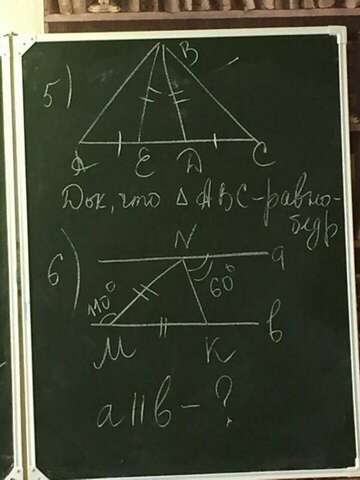 5)
B
A
E
D
C
Док, что △ABC-равно-
бедр
6)
N
a
110°
60°
M
K
b
a∥b - ?